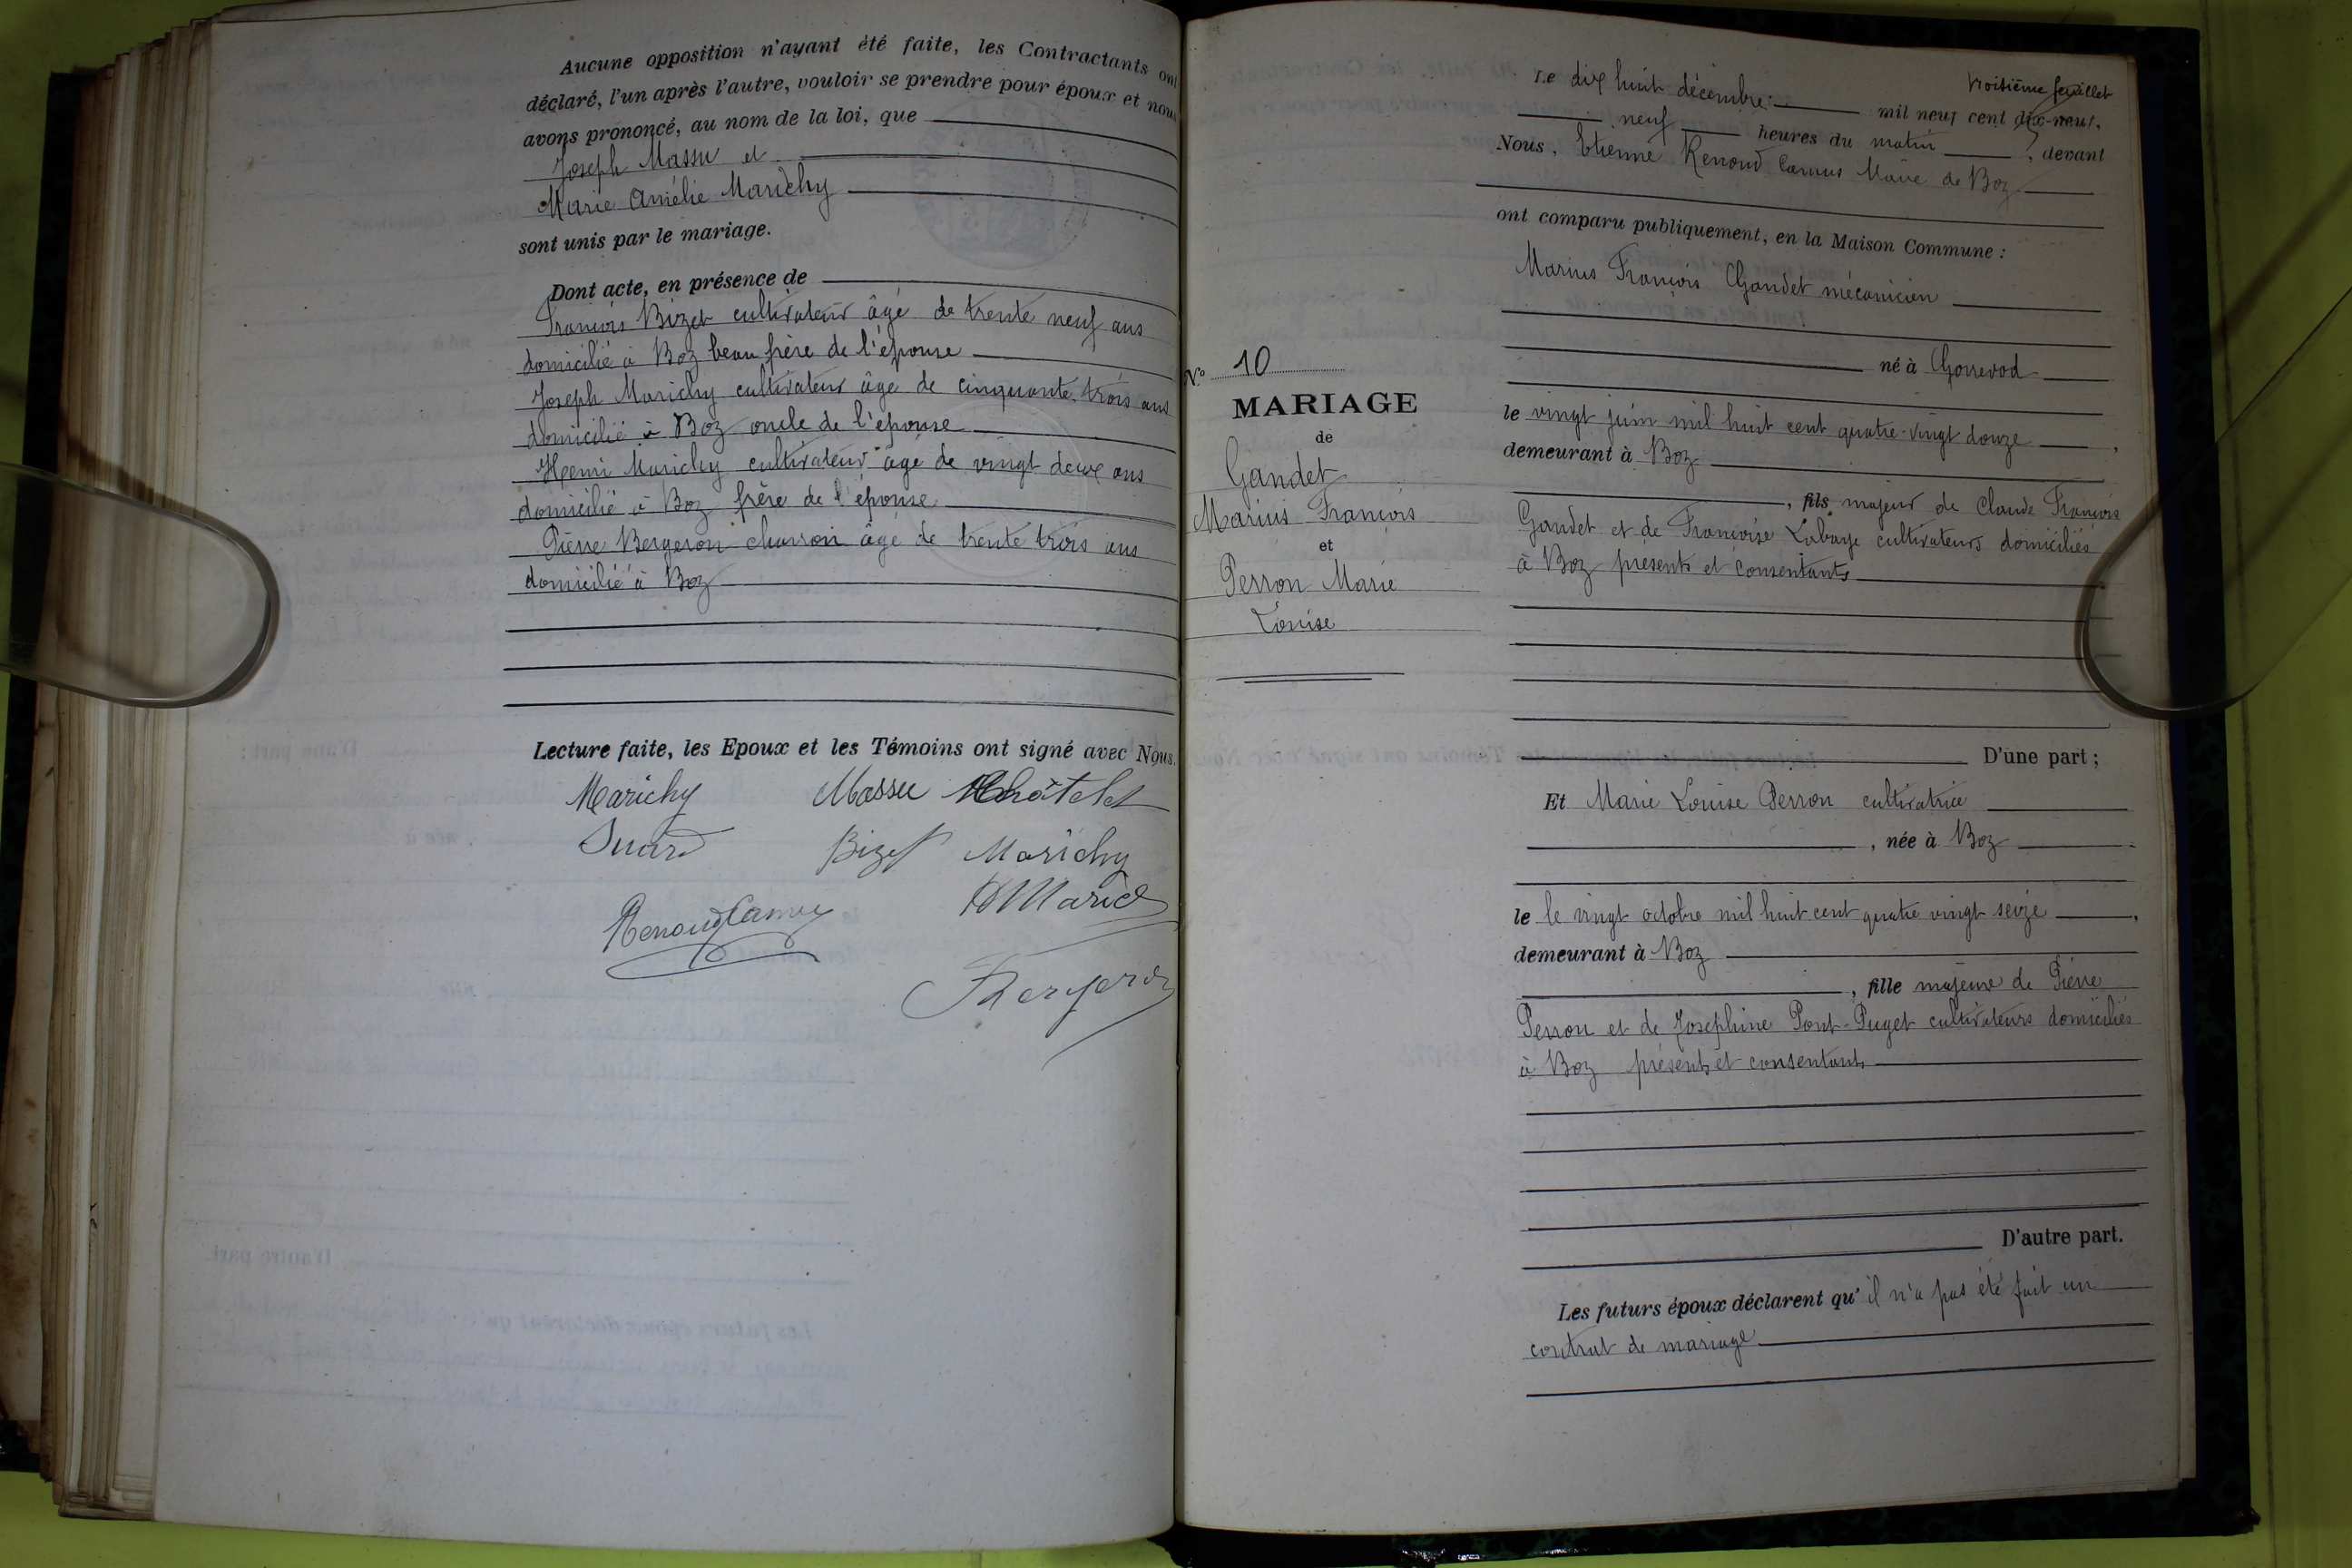 Aucune opposition n'ayant été faite, les Contractants ont
déclaré, l'un après l'autre, vouloir se prendre pour époux et nous
avons prononcé, au nom de la loi, que
Joseph Massu et
Marie Amélie Marichy
sont unis par le mariage.
Dont acte, en présence de
François Bizet cultivateur âgé de trente neuf ans
domicilié à Boz beau frère de l'épouse
Joseph Marichy cultivateur âgé de cinquante trois ans
domicilié à Boz oncle de l'épouse
Henri Marichy cultivateur âgé de vingt deux ans
domicilié à Boz frère de l'épouse
Pierre Bergeron charron âgé de trente trois ans
domicilié à Boz
Lecture faite, les Epoux et les Témoins ont signé avec Nous.
Marichy Massu Châtelet
Suard Bizet Marichy
Renoud Camus
Bergeron
troisième feuillet
Le dix huit décembre mil neuf cent dix-neuf,
neuf heures du matin, devant
Nous, Etienne Renoud Camus Maire de Boz
ont comparu publiquement, en la Maison Commune :
Marius François Gandet mécanicien
né à Gorrevod
le vingt juin mil huit cent quatre-vingt douze,
demeurant à Boz
, fils majeur de Claude François
Gandet et de Françoise Labaye cultivateurs domiciliés
à Boz présents et consentants
D'une part ;
N° 10
MARIAGE
de
Gandet
Marius François
et
Perron Marie
Louise
Et Marie Louise Perron cultivatrice
, née à Boz
le le vingt octobre mil huit cent quatre vingt seize,
demeurant à Boz
, fille majeure de Pierre
Perron et de Joséphine Pont-Puget cultivateurs domiciliés
à Boz présents et consentants
D'autre part.
Les futurs époux déclarent qu'il n'a pas été fait un
contrat de mariage